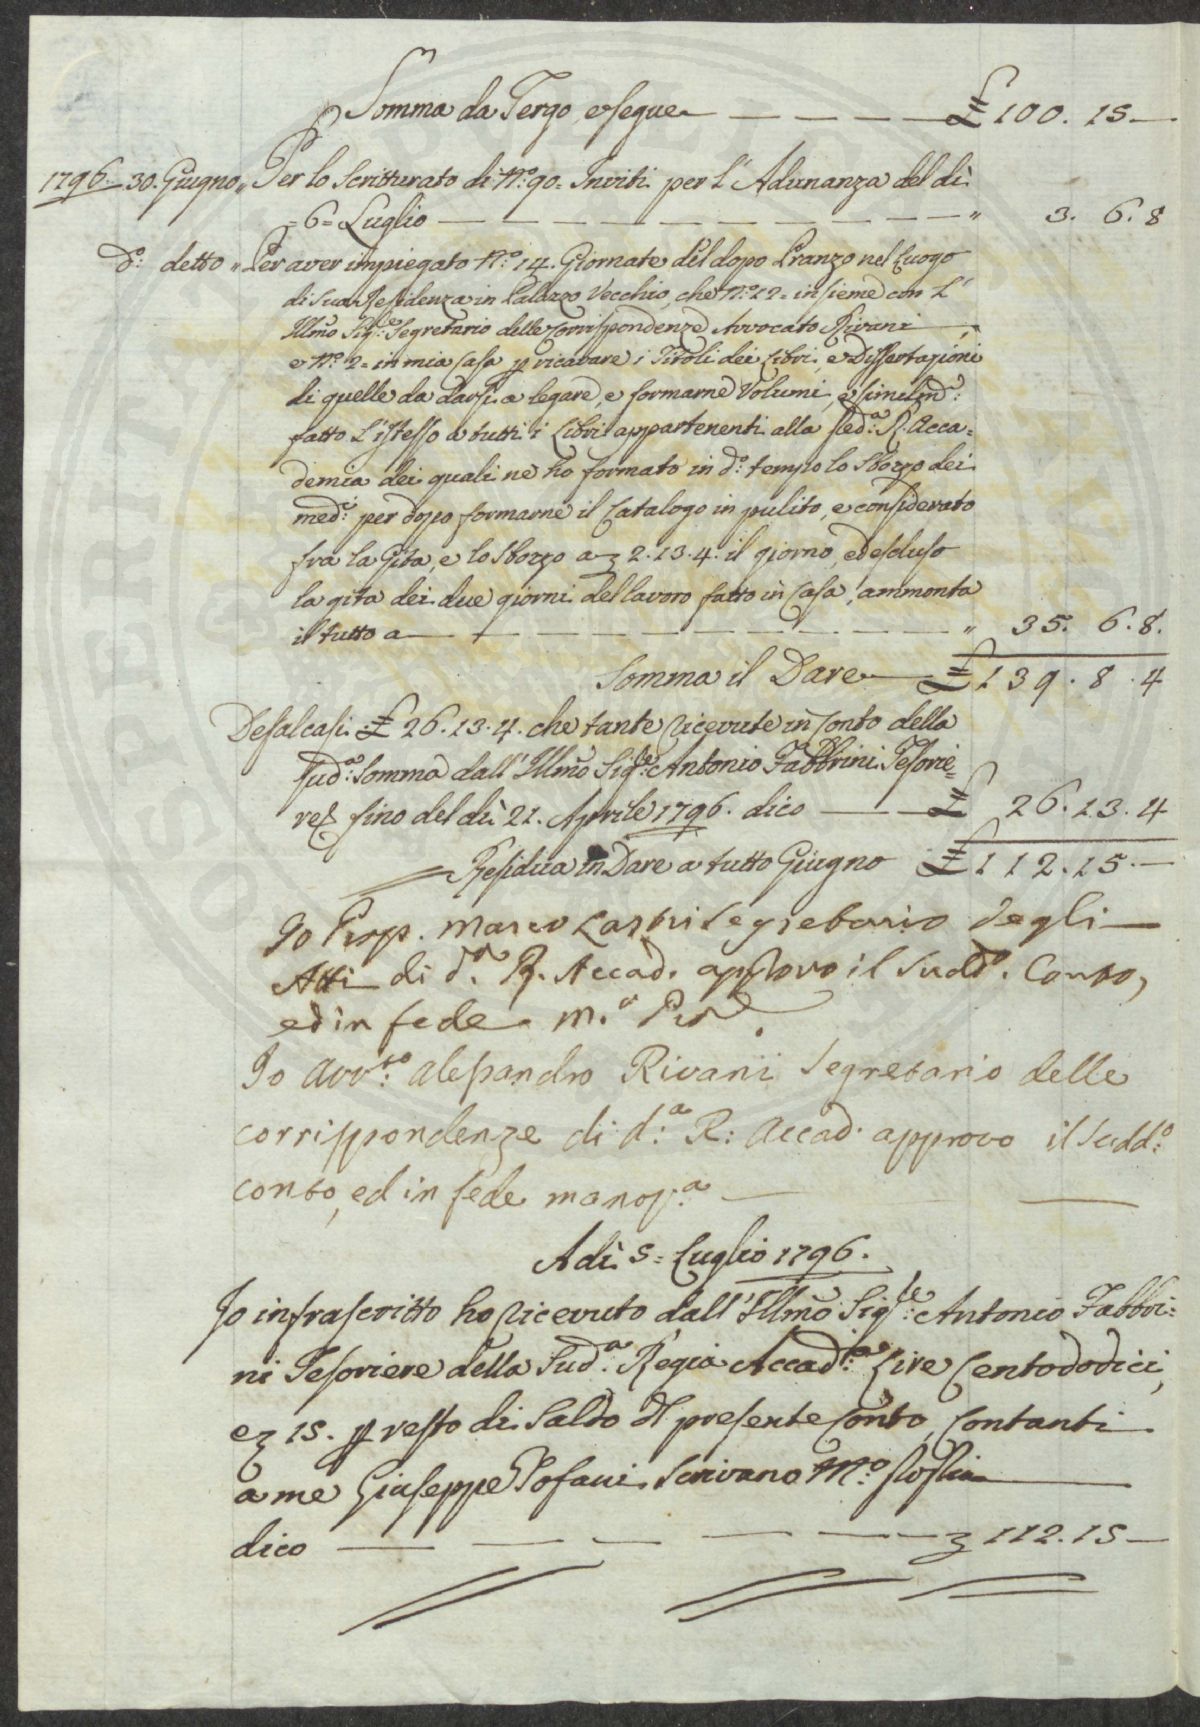 Somma da Tergo, e segue — — — — £ 100. 15 —
1796. 30. Giugno „ Per lo Scritturato di N.° 90 = Inviti per l'Adunanza del dì
= 6 = Luglio — — — — — — — — „ 3. 6. 8
d.° detto „ Per aver impiegato N.° 14. Giornate del dopo Pranzo nel Luogo
di sua Residenza in Palazzo Vecchio, che N.° 12 = insieme con l'
Illmo Sig.re Segretario delle Corrispondenze Avvocato Rivani,
e N.° 2 = in mia Casa p ricavare i Titoli dei Libri, e Dissertazioni
di quelle da darsi a legare, e formarne Volumi, e similm.e:
fatto l'istesso a tutti i Libri appartenenti alla sud.a R. Acca=
demia dei quali ne ho formato in d.° tempo lo Sbozzo dei
med.i per dopo formarne il Catalogo in pulito, e considerato
fra la Gita, e lo Sbozzo a 2. 13. 4. il giorno, ed escluso
la gita dei due giorni del lavoro fatto in Casa, ammonta
il tutto a — — — — — — — „ 35. 6. 8.
Somma il Dare — £ 139. 8. 4
Defalcasi £ 26. 13. 4. che tante ricevute in Conto della
sud.a Somma dall'Illmo Sig.re Antonio Fabbrini Tesorie=
re fino del dì 21. Aprile 1796. dico — — £ 26. 13. 4
Residua in Dare a tutto Giugno £ 112. 15. —
Io Prop. Marco Lastri Segretario degli
Atti di d.a R. Accad. approvo il sudd.o Conto,
ed in fede m.° P.a
Io Avv.to Alessandro Rivani Segretario delle
corrispondenze di d.a R: Accad. approvo il sudd.o
conto, ed in fede mano p.a
Adì 5 = Luglio 1796.
Io infrascritto ho ricevuto dall'Illmo Sig.re Antonio Fabbri=
ni Tesoriere della Sud.a Regia Accad.a Lire Centododici,
e 15. p resto di Saldo del presente Conto, Contanti
a me Giuseppe Tofani Scrivano M.° ppria
dico — — — — — — 112. 15 —